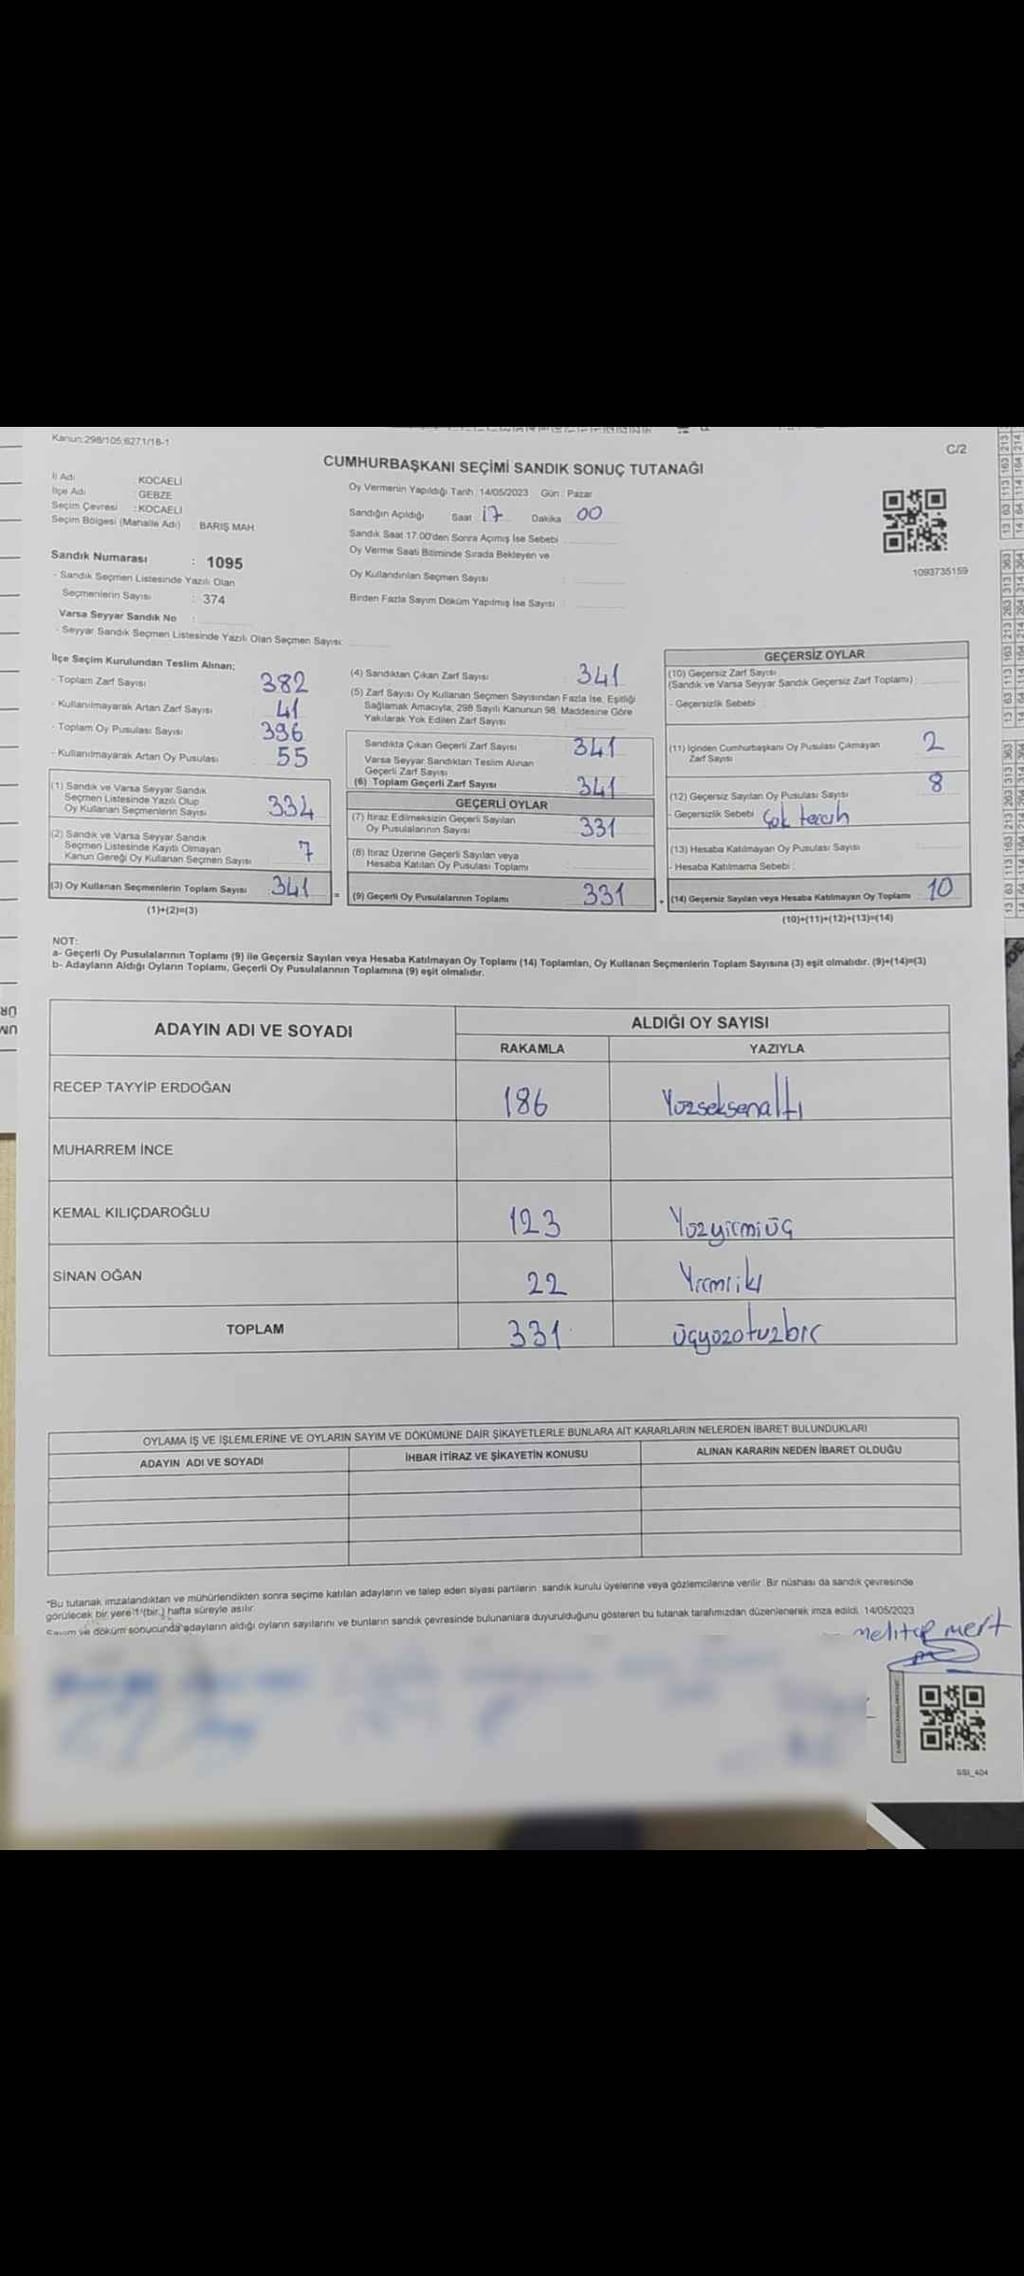 Kanun:298/105;6271/18-1
C/2
CUMHURBAŞKANI SEÇİMİ SANDIK SONUÇ TUTANAĞI
İl Adı : KOCAELİ
İlçe Adı : GEBZE
Seçim Çevresi : KOCAELİ
Seçim Bölgesi (Mahalle Adı) : BARIŞ MAH
Sandık Numarası : 1095
- Sandık Seçmen Listesinde Yazılı Olan
Seçmenlerin Sayısı : 374
Varsa Seyyar Sandık No :
- Seyyar Sandık Seçmen Listesinde Yazılı Olan Seçmen Sayısı:
Oy Vermenin Yapıldığı Tarih : 14/05/2023 Gün : Pazar
Sandığın Açıldığı Saat 17 Dakika 00
Sandık Saat 17:00'den Sonra Açılmış İse Sebebi
Oy Verme Saati Bitiminde Sırada Bekleyen ve
Oy Kullandırılan Seçmen Sayısı :
Birden Fazla Sayım Döküm Yapılmış İse Sayısı :
1093735159
İlçe Seçim Kurulundan Teslim Alınan;
- Toplam Zarf Sayısı 382
- Kullanılmayarak Artan Zarf Sayısı 41
- Toplam Oy Pusulası Sayısı 396
- Kullanılmayarak Artan Oy Pusulası 55
(1) Sandık ve Varsa Seyyar Sandık
Seçmen Listesinde Yazılı Olup
Oy Kullanan Seçmenlerin Sayısı 334
(2) Sandık ve Varsa Seyyar Sandık
Seçmen Listesinde Kayıtlı Olmayan
Kanun Gereği Oy Kullanan Seçmen Sayısı 7
(3) Oy Kullanan Seçmenlerin Toplam Sayısı 341 =
(1)+(2)=(3)
(4) Sandıktan Çıkan Zarf Sayısı : 341
(5) Zarf Sayısı Oy Kullanan Seçmen Sayısından Fazla İse, Eşitliği
Sağlamak Amacıyla, 298 Sayılı Kanunun 98. Maddesine Göre
Yakılarak Yok Edilen Zarf Sayısı :
Sandıkta Çıkan Geçerli Zarf Sayısı 341
Varsa Seyyar Sandıktan Teslim Alınan
Geçerli Zarf Sayısı
(6) Toplam Geçerli Zarf Sayısı 341
GEÇERLİ OYLAR
(7) İtiraz Edilmeksizin Geçerli Sayılan
Oy Pusulalarının Sayısı 331
(8) İtiraz Üzerine Geçerli Sayılan veya
Hesaba Katılan Oy Pusulası Toplamı
(9) Geçerli Oy Pusulalarının Toplamı 331 +
GEÇERSİZ OYLAR
(10) Geçersiz Zarf Sayısı
(Sandık ve Varsa Seyyar Sandık Geçersiz Zarf Toplamı) :
- Geçersizlik Sebebi :
(11) İçinden Cumhurbaşkanı Oy Pusulası Çıkmayan
Zarf Sayısı 2
(12) Geçersiz Sayılan Oy Pusulası Sayısı 8
- Geçersizlik Sebebi : Çok tercih
(13) Hesaba Katılmayan Oy Pusulası Sayısı
- Hesaba Katılmama Sebebi :
(14) Geçersiz Sayılan veya Hesaba Katılmayan Oy Toplamı 10
(10)+(11)+(12)+(13)=(14)
NOT:
a- Geçerli Oy Pusulalarının Toplamı (9) ile Geçersiz Sayılan veya Hesaba Katılmayan Oy Toplamı (14) Toplamları, Oy Kullanan Seçmenlerin Toplam Sayısına (3) eşit olmalıdır. (9)+(14)=(3)
b- Adayların Aldığı Oyların Toplamı, Geçerli Oy Pusulalarının Toplamına (9) eşit olmalıdır.
ADAYIN ADI VE SOYADI ALDIĞI OY SAYISI
RAKAMLA YAZIYLA
RECEP TAYYİP ERDOĞAN 186 Yüzseksenaltı
MUHARREM İNCE
KEMAL KILIÇDAROĞLU 123 Yüzyirmiüç
SİNAN OĞAN 22 Yirmiiki
TOPLAM 331 üçyüzotuzbir
OYLAMA İŞ VE İŞLEMLERİNE VE OYLARIN SAYIM VE DÖKÜMÜNE DAİR ŞİKAYETLERLE BUNLARA AİT KARARLARIN NELERDEN İBARET BULUNDUKLARI
ADAYIN ADI VE SOYADI İHBAR İTİRAZ VE ŞİKAYETİN KONUSU ALINAN KARARIN NEDEN İBARET OLDUĞU
*Bu tutanak imzalandıktan ve mühürlendikten sonra seçime katılan adayların ve talep eden siyasi partilerin sandık kurulu üyelerine veya gözlemcilerine verilir. Bir nüshası da sandık çevresinde
görülecek bir yere 1 (bir) hafta süreyle asılır.
Sayım ve döküm sonucunda adayların aldığı oyların sayılarını ve bunların sandık çevresinde bulunanlara duyurulduğunu gösteren bu tutanak tarafımızdan düzenlenerek imza edildi. 14/05/2023
mert
SSI_404